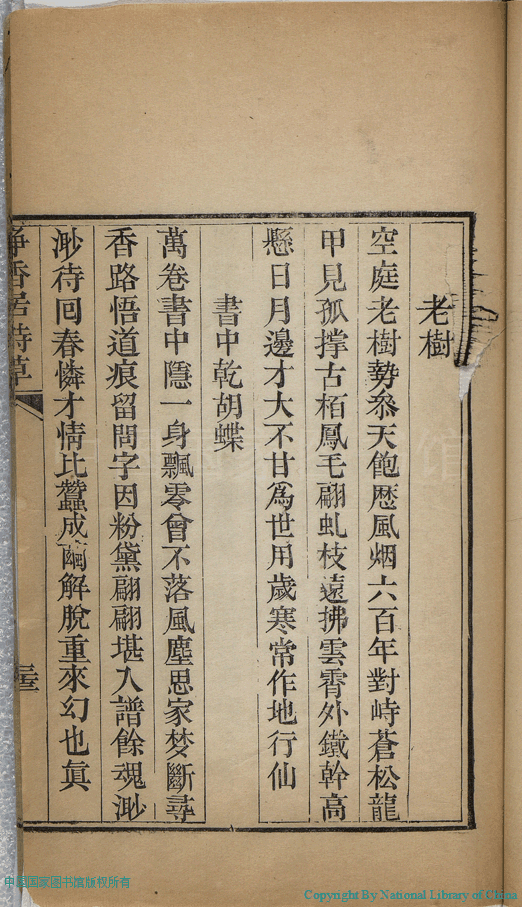 老樹
空庭老樹勢叅天飽歴風烟六百年對峙蒼松龍
甲見孤撑古栢鳳毛翩虬枝遠拂雲霄外鐵幹高
懸日月邊才大不甘爲世用歲寒常作地行仙
書中乾胡蝶
萬卷書中隱一身飄零曾不落風塵思家梦斷尋
香路悟道痕留問字因粉黛翩翩堪入譜餘魂渺
渺待回春憐才情比蠶成繭解脫重來幻也眞
淨香居詩草
二十三
中国国家图书馆版权所有
Copyright By National Library of China